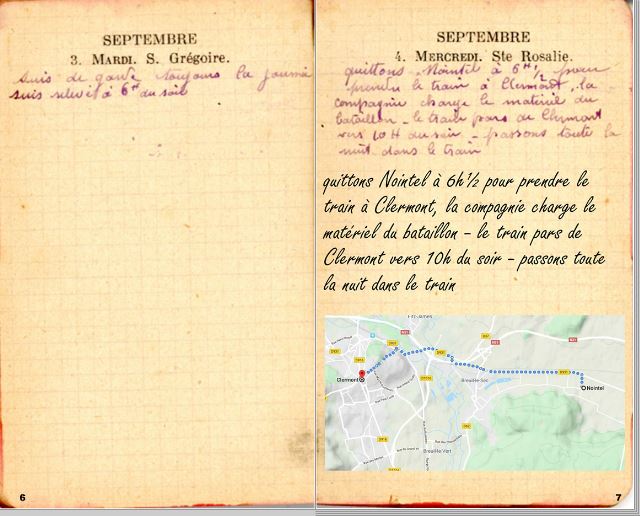 SEPTEMBRE
3. MARDI. S. Grégoire.
suis de garde toujours la journée
suis relevé à 6H du soir
6
SEPTEMBRE
4. MERCREDI. Ste Rosalie.
quittons Nointel à 6H½ pour
prendre le train à Clermont, la
compagnie charge le matériel du
bataillon - le train pars de Clermont
vers 10H du soir - passons toute la
nuit dans le train
quittons Nointel à 6h½ pour prendre le
train à Clermont, la compagnie charge le
matériel du bataillon - le train pars de
Clermont vers 10h du soir - passons toute
la nuit dans le train
Fitz-James
Clermont
Breuil-le-Sec
Nointel
Breuil-le-Vert
7